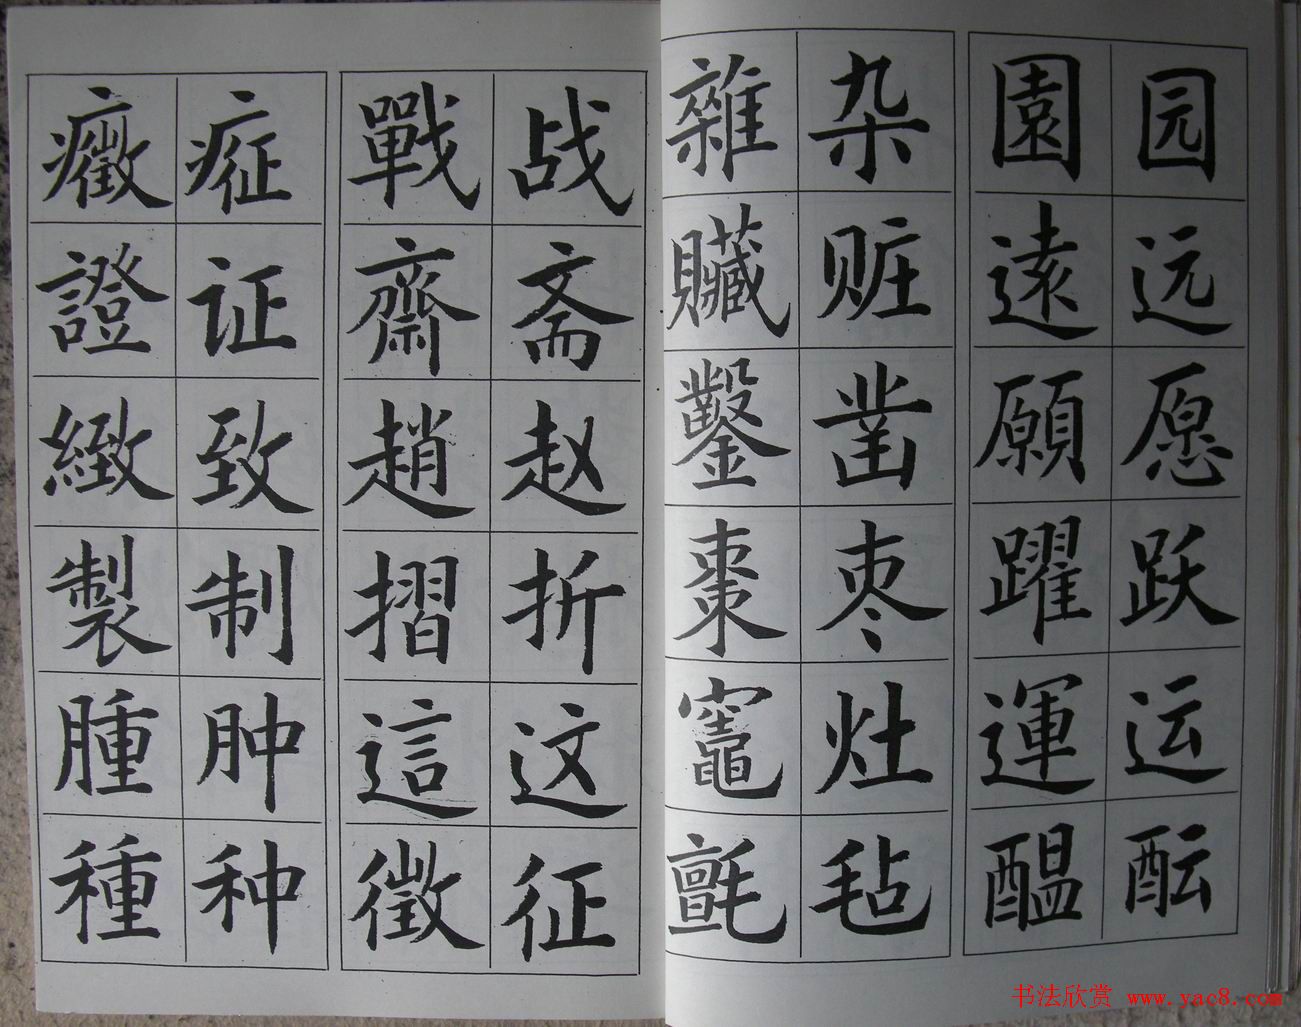 园远愿跃运酝
園遠願躍運醞
杂赃凿枣灶毡
雜贜鑿棗竈氈
战斋赵折这征
戰齋趙摺這徵
症证致制肿种
癥證緻製腫種
书法欣赏 www.yac8.com